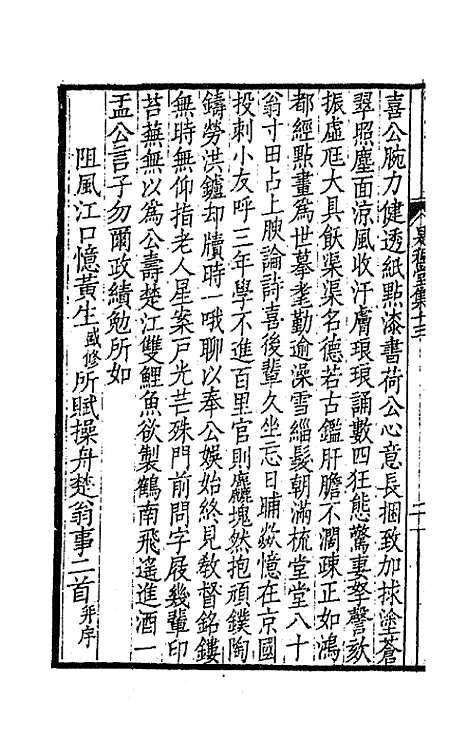 喜公腕力健透紙點漆書荷公心意長捆致加捄塗蒼
翠照塵面涼風收汗膚琅琅誦數四狂態驚妻孥謦欬
振虛尫大具飫渠渠名德若古鑑肝膽不濶疎正如鴻
都經點畫爲世摹耄勤逾澡雪緇髮朝滿梳堂堂八十
翁寸田占上腴論詩喜後輩久坐忘日晡歘憶在京國
投刺小友呼三年學不進百里官則麤塊然抱頑鏷陶
鑄勞洪鑪却牘時一哦聊以奉公娛始終見敎督銘鏤
無時無仰指老人星案戶光芒殊門前問字屐幾輩印
苔蕪無以爲公壽楚江雙鯉魚欲製鶴南飛遙進酒一
盂公言子勿爾政績勉所如
阻風江口憶黃生或修所賦操舟楚翁事二首并序
集十三
二十